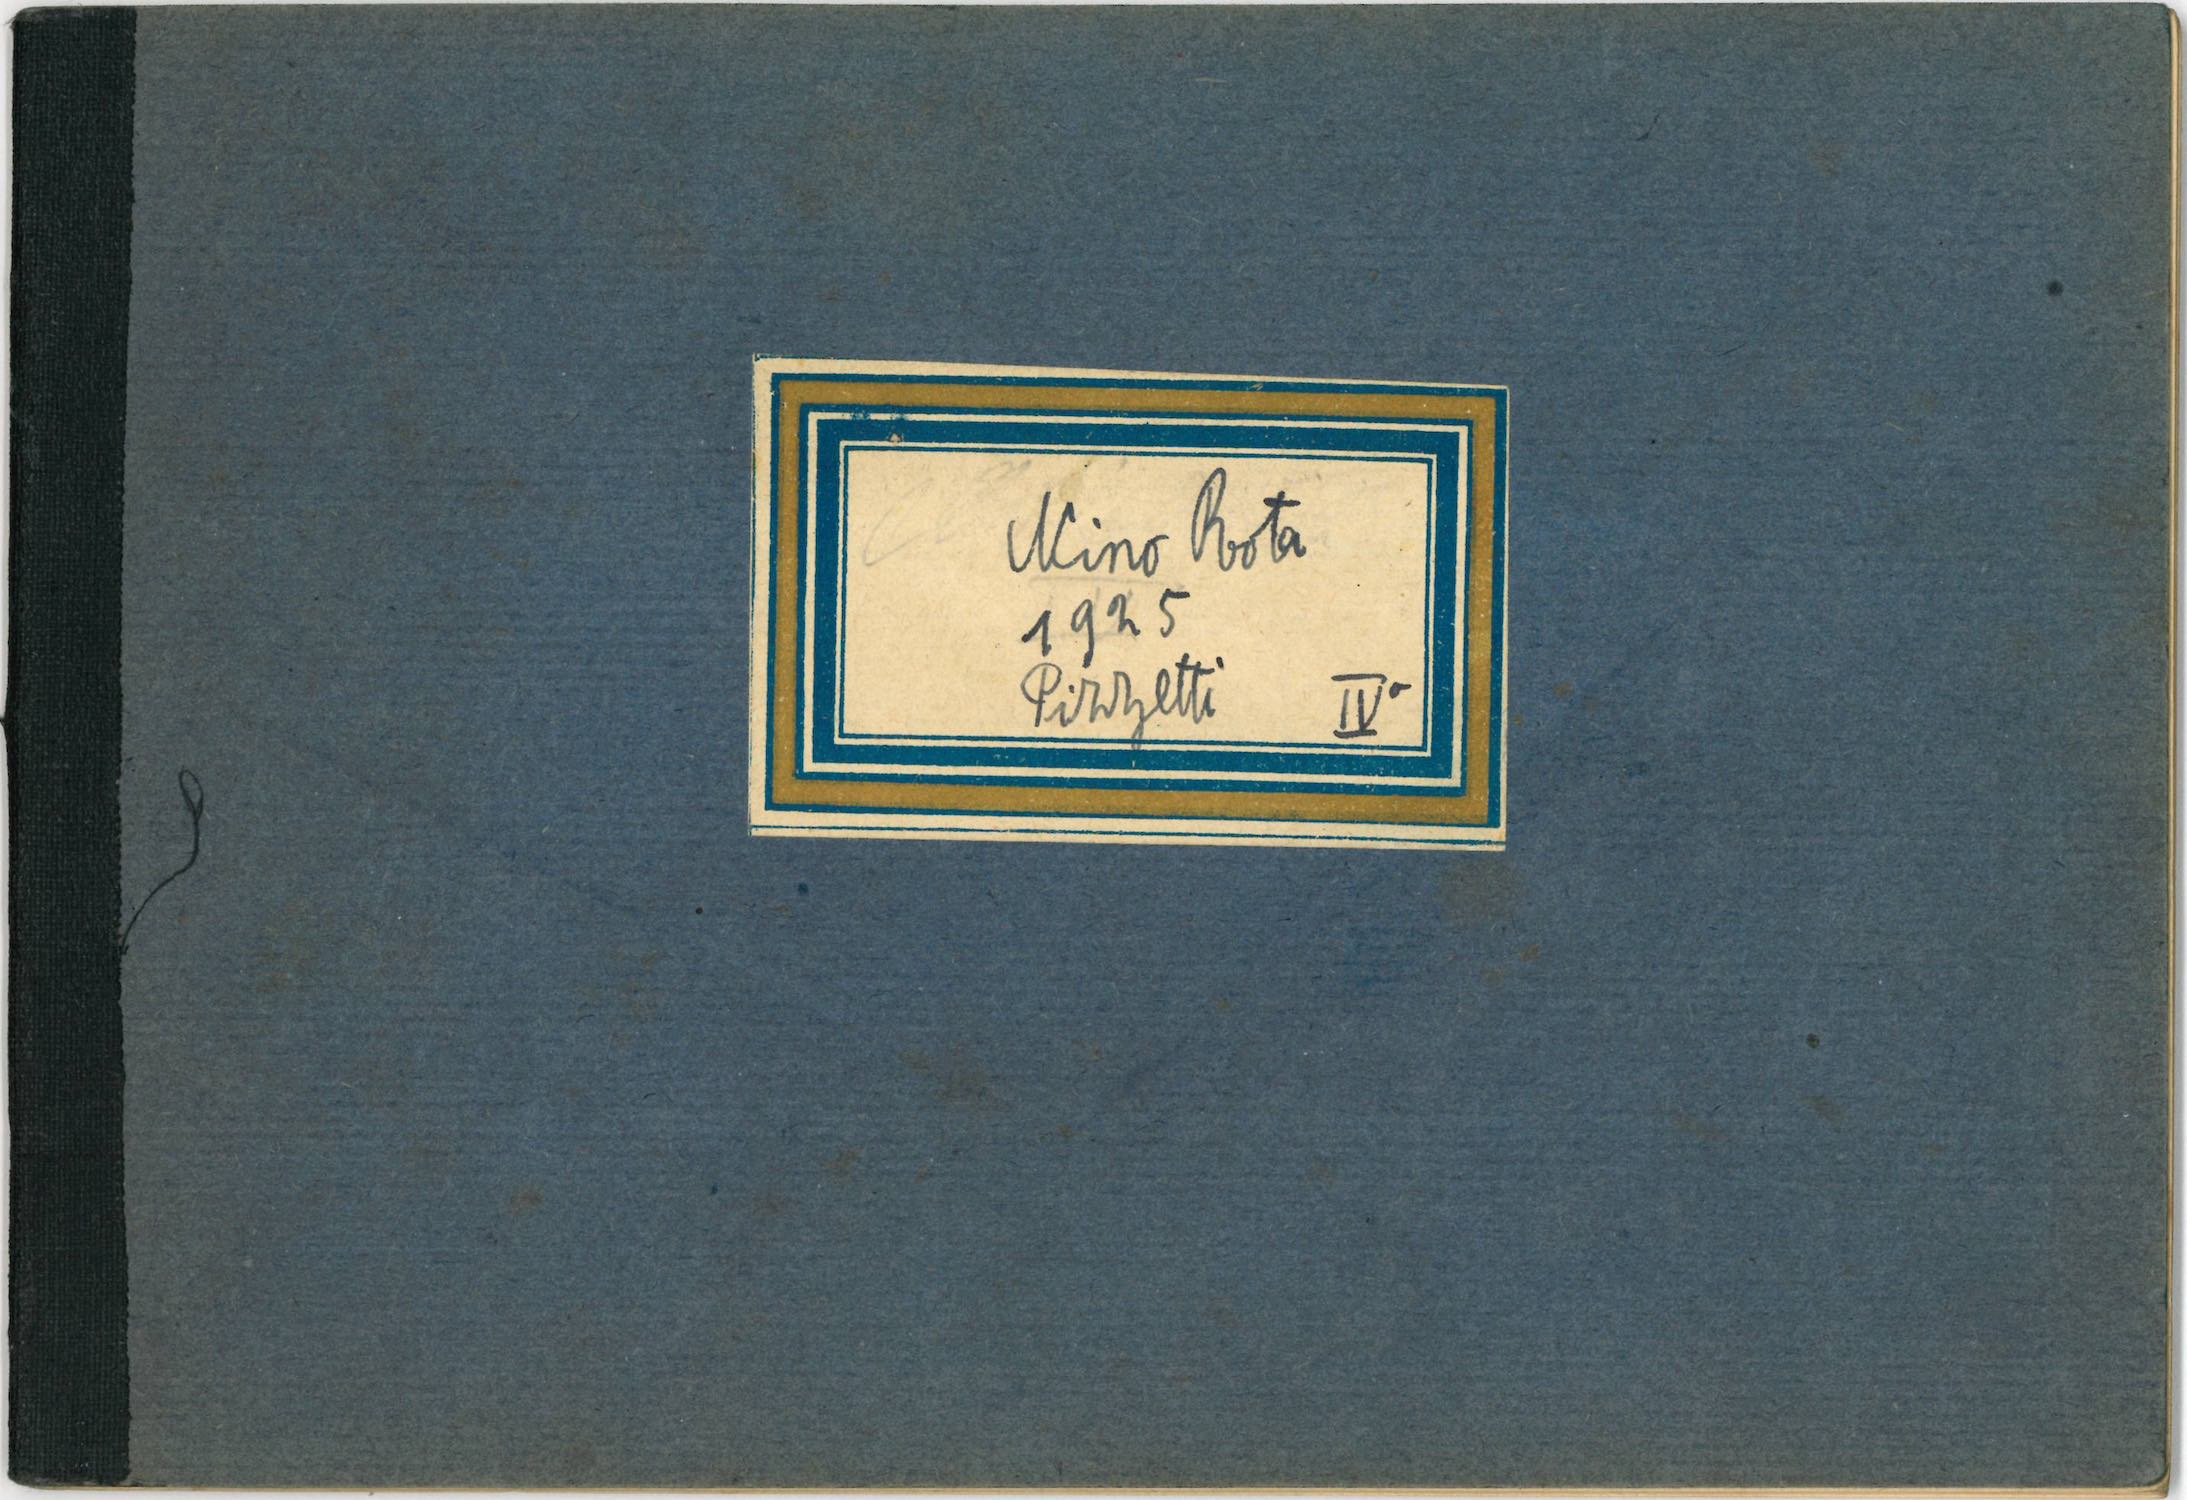 Nino Rota
1925
Pizzetti IVº